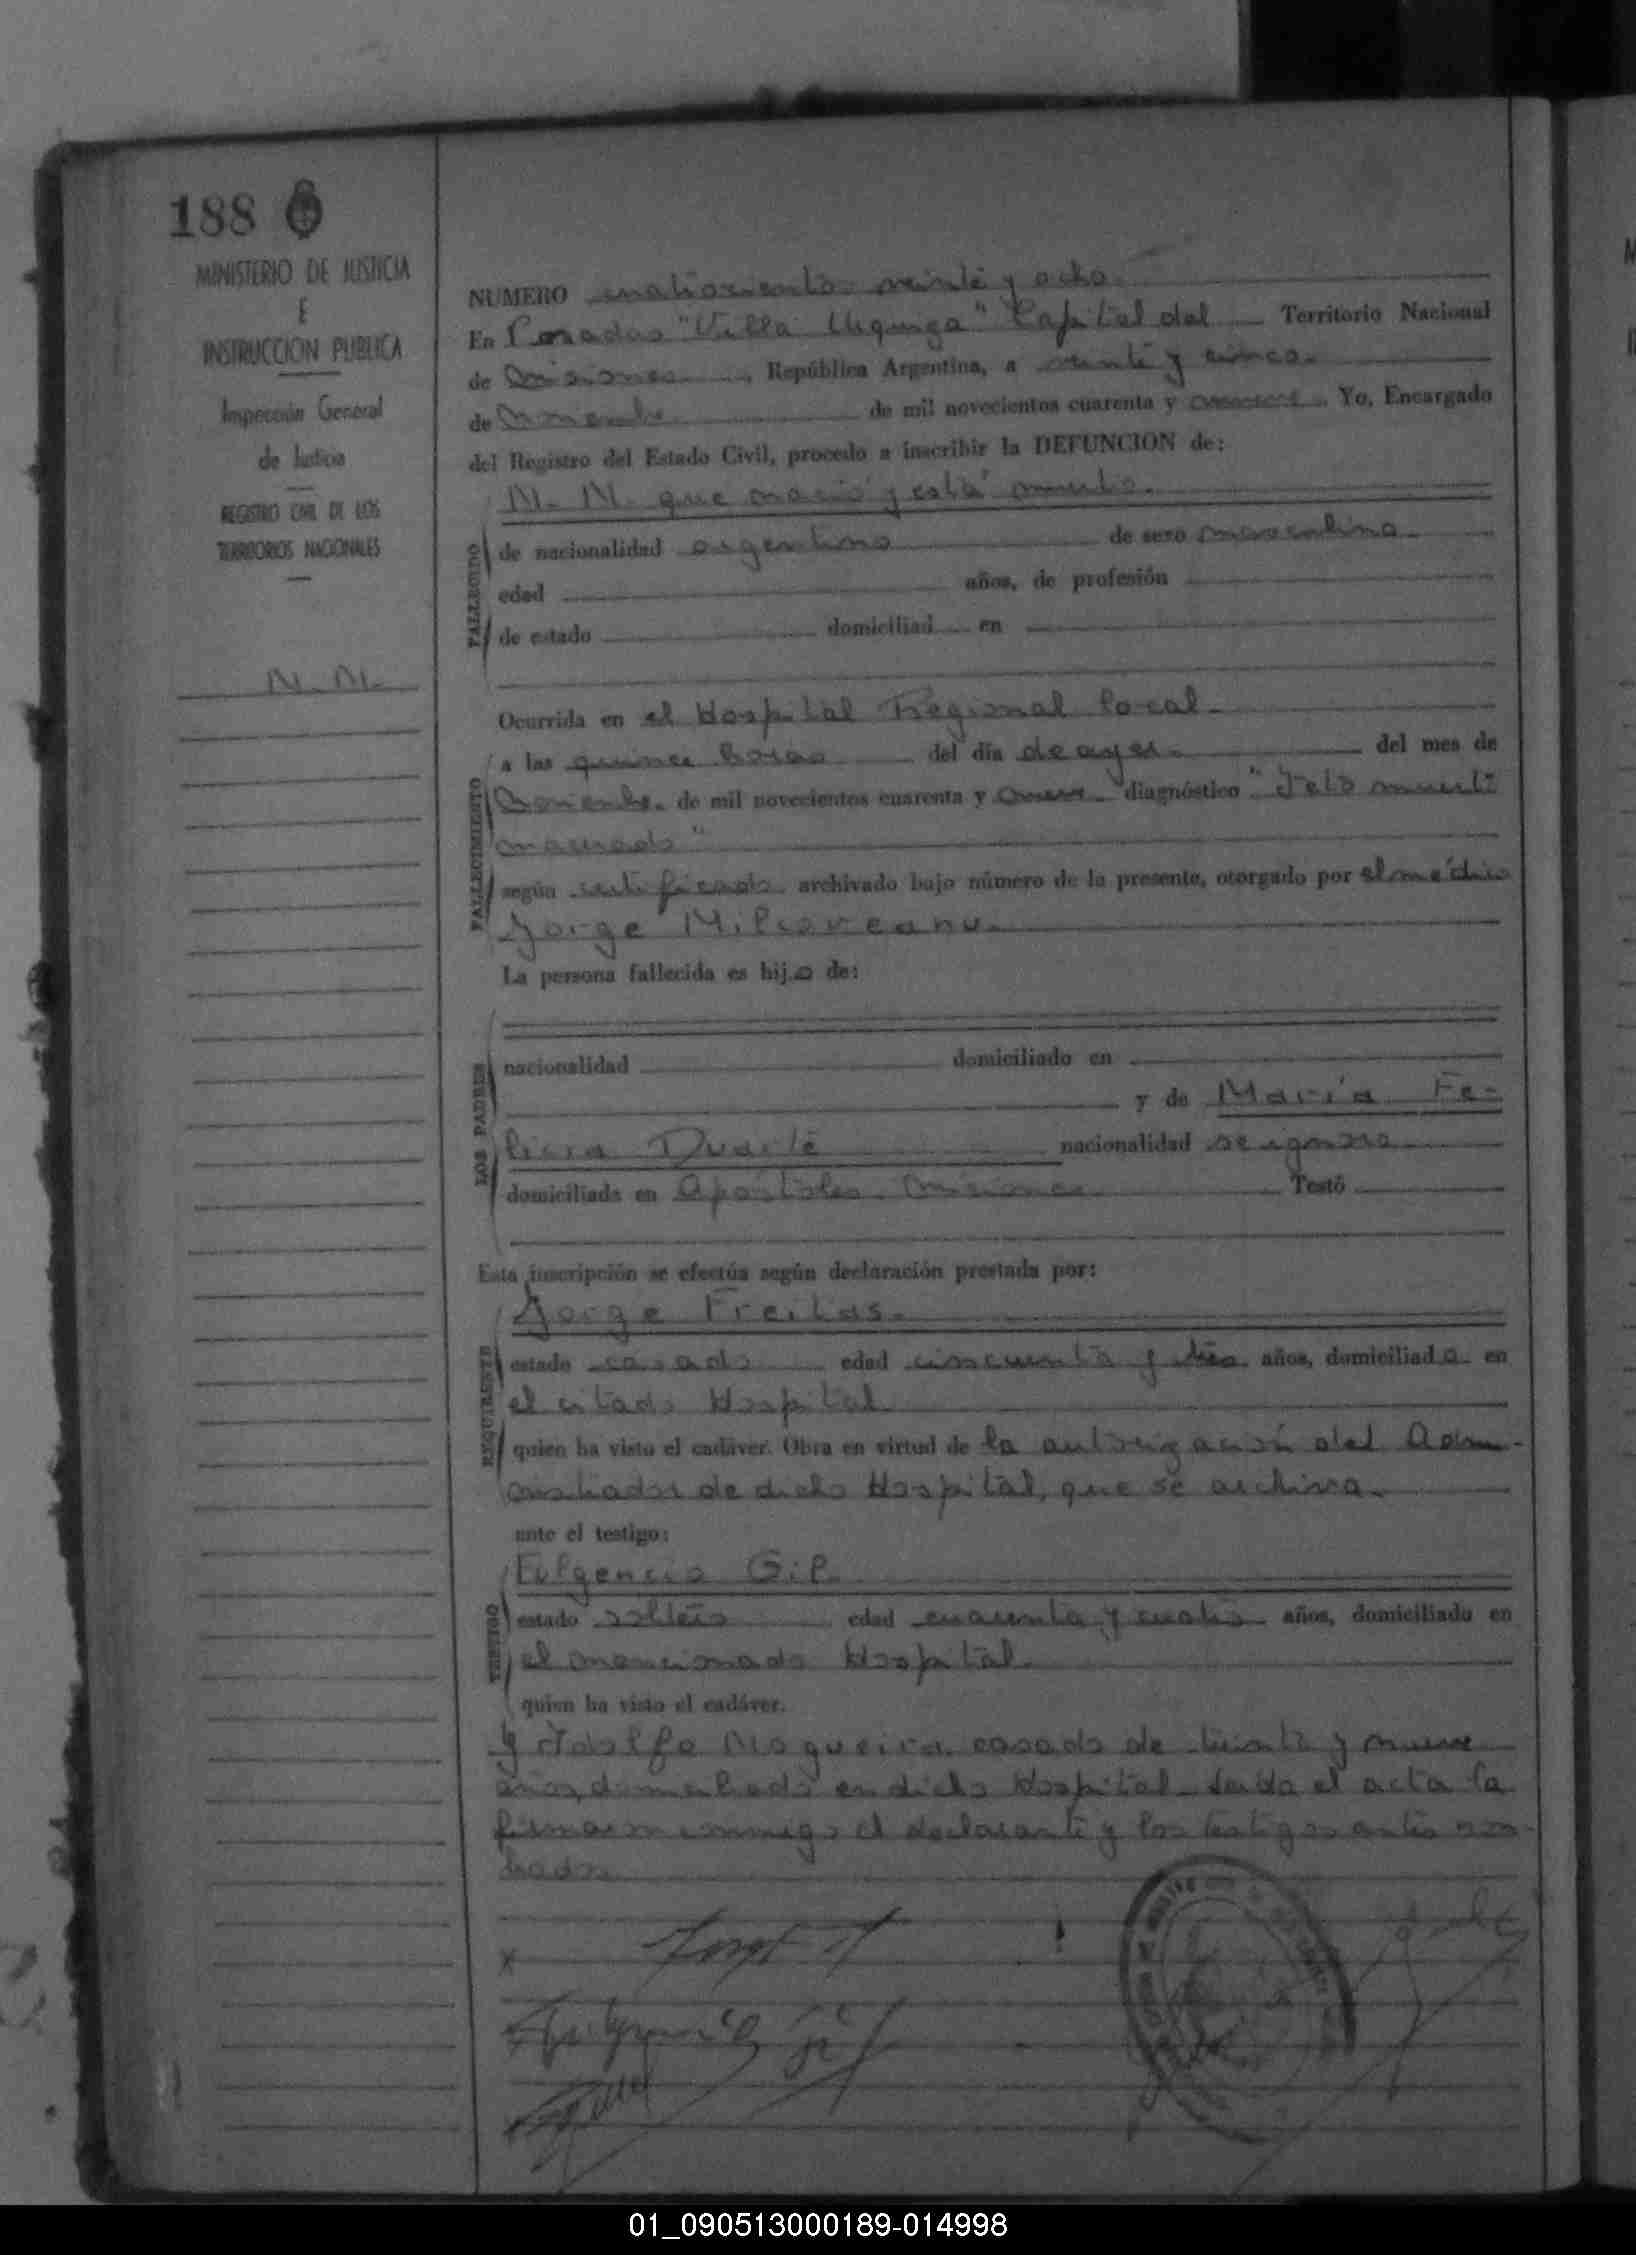 188
MINISTERIO DE JUSTICIA
E
INSTRUCCION PUBLICA
Inspección General
de Justicia
REGISTRO CIVIL DE LOS
TERRITORIOS NACIONALES
N. N.
NUMERO cuatrocientos veinte y ocho.
En Posadas "Villa Urquiza" Capital del Territorio Nacional
de Misiones, República Argentina, a veinte y cinco
de Noviembre de mil novecientos cuarenta y nueve. Yo, Encargado
del Registro del Estado Civil, procedo a inscribir la DEFUNCION de:
N. N. que nació y está muerto.
FALLECIDO
de nacionalidad argentino de sexo masculino
edad años, de profesión
de estado domiciliad en
Ocurrida en el Hospital Regional local
FALLECIMIENTO
a las quince horas del día de ayer del mes de
Noviembre de mil novecientos cuarenta y nueve diagnóstico "Feto muerto
macerado"
según certificado archivado bajo número de la presente, otorgado por el médico
Jorge Milcoveanu.
La persona fallecida es hijo de:
LOS PADRES
nacionalidad domiciliado en
y de María Fe-
licia Duarte nacionalidad se ignora
domiciliada en Apóstoles Misiones Testó
Esta inscripción se efectúa según declaración prestada por:
REQUIRENTE
Jorge Freitas.
estado casado edad cincuenta y tres años, domiciliado en
el citado Hospital
quien ha visto el cadáver. Obra en virtud de la autorización del Admi-
nistrador de dicho Hospital, que se archiva.
ante el testigo:
TESTIGO
Fulgencio Gil
estado soltero edad cuarenta y cuatro años, domiciliado en
el mencionado Hospital
quien ha visto el cadáver.
y Adolfo Nogueira casado de treinta y nueve
años, domiciliado en dicho Hospital. Leída el acta la
firmaron conmigo el declarante y los testigos antes nom-
brados.
Jorge
Fulgencio Gil
01_090513000189-014998